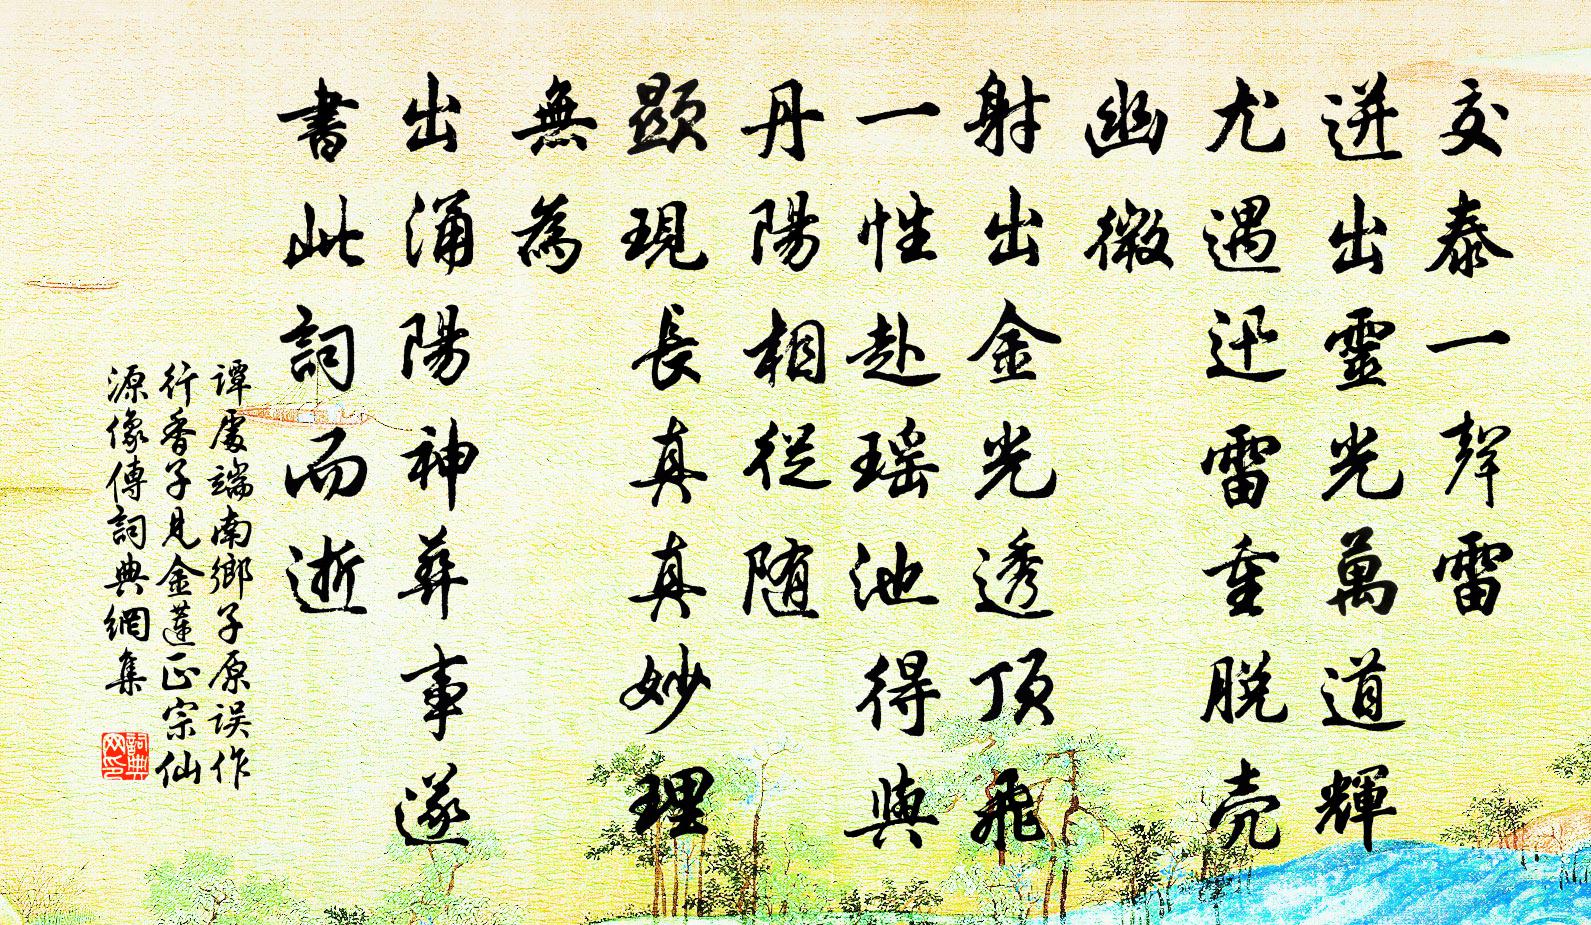 交泰一聲雷
迸出靈光萬道輝
尤遇迅雷重脫壳
幽微
射出金光透頂飛
一性赴瑶池得與
丹陽相從随
顯現長真真妙理
無為
出涌陽神彜事遂
書此詞而逝
譚處端南鄉子原误作
行香子見金蓮正宗仙
源像傳詞典網集
詞典
网印